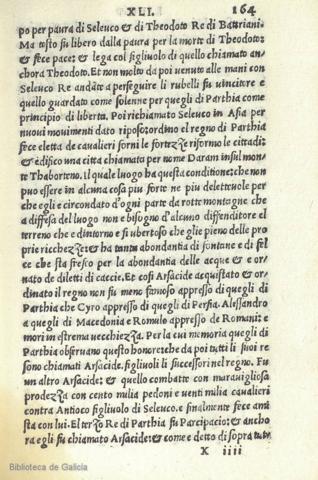 XLI. 164
po per paura di Seleuco & di Theodoto Re di Battriani.
Ma tosto fu libero dalla paura per la morte di Theodoto:
& fece pace: & lega col figliuolo di quello chiamato an-
chora Theodoto. Et non molto da poi venuto alle mani con
Seleuco Re andato a perseguire li rubelli fu vincitore e
quello guardato come solenne per quegli di Parthia come
principio di liberta. Poi richiamato Seleuco in Asia per
nuovi movimenti dato riposo: ordino el regno di Parthia
fece eletta de cavalieri forni le fortezze riformo le cittadi:
& edifico una citta chiamata per nome Daram in sul mon-
te Thaborteno. il quale luogo ha questa conditione: che non
puo essere in alcuna cosa piu forte ne piu delettevole per
che egli e circondato d'ogni parte da rotte montagne che
a diffesa del luogo non e bisogno d'alcuno diffenditore el
terreno che e dintorno e si ubertoso che glie pieno delle pro
prie ricchezze: & ha tanta abondantia di fontane e di sel
ce che sta fresco per la abondantia delle acque & e or-
nato de diletti di caccie. Et cosi Arsacide acquistato & or-
dinato il regno non fu meno famoso appresso di quegli di
Parthia che Cyro appresso di quegli di Persia. Alessandro
a quegli di Macedonia e Romulo appresso de Romani: e
mori in estrema vecchiezza. Per la cui memoria quegli di
Parthia observano questo honore: che da poi tutti li suoi re
sono chiamati Arsacide. figliuoli li successori nel regno. Fu
un altro Arsacide: & quello combatte con maravigliosa
prodezza con cento milia pedoni e venti milia cavalieri
contra Antioco figliuolo di Seleuco. e finalmente fece ami
sta con lui. El terzo Re di Parthia fu Parcipacio: & ancho
ra egli fu chiamato Arsacide: & come e detto di sopra tut-
X iiii
Biblioteca de Galicia